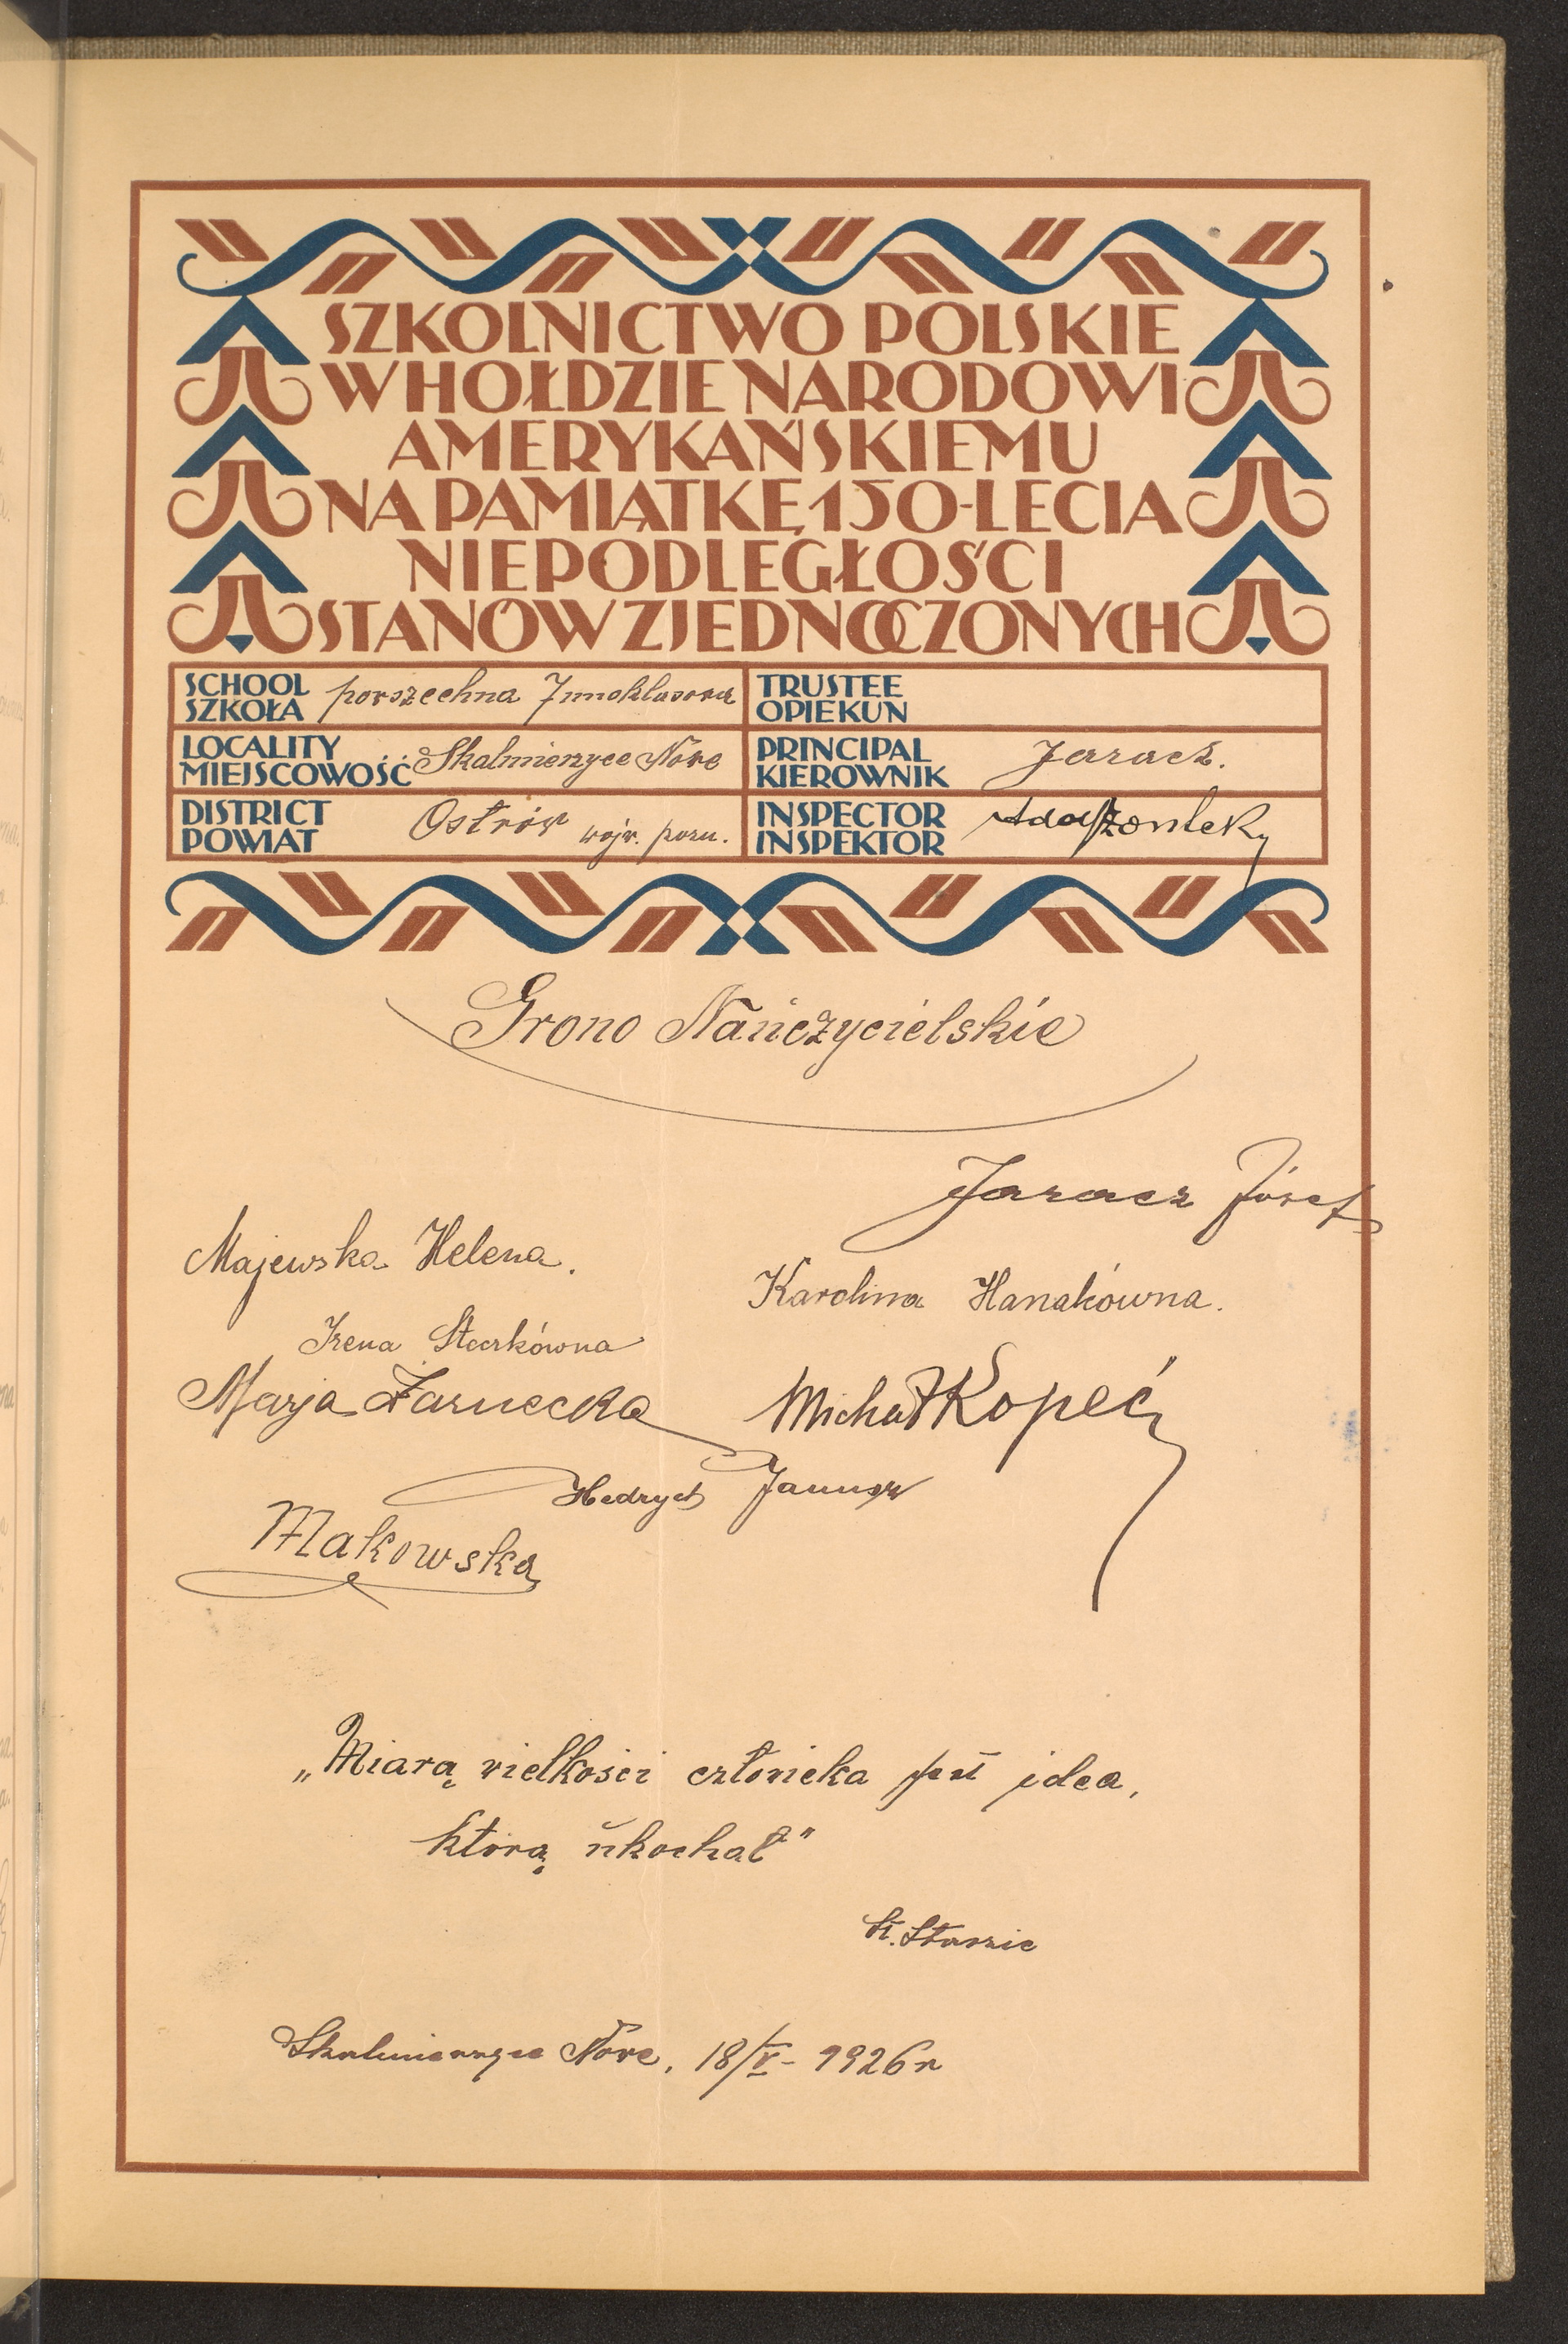 SZKOLNICTWO POLSKIE
W HOŁDZIE NARODOWI
AMERYKAŃSKIEMU
NA PAMIĄTKĘ 150-LECIA
NIEPODLEGŁOŚCI
STANÓW ZJEDNOCZONYCH
SCHOOL
SZKOŁA powszechna 7mioklasowa
TRUSTEE
OPIEKUN
LOCALITY
MIEJSCOWOŚĆ Skalmierzyce Nowe
PRINCIPAL
KIEROWNIK Jaracz.
DISTRICT
POWIAT Ostrów wojw. pozn.
INSPECTOR
INSPEKTOR
Grono Naučzycielskie
Jaracz Józef
Majewska Helena.
Karolina Hanakówna.
Irena Starkówna
Marja Żarnecka
Michał Kopeć
Hedrych Janusz
Makowska
„Miarą wielkości człowieka jest idea,
którą ukochał"
St. Staszic
Skalmierzyce Nowe, 18/V - 1926 r